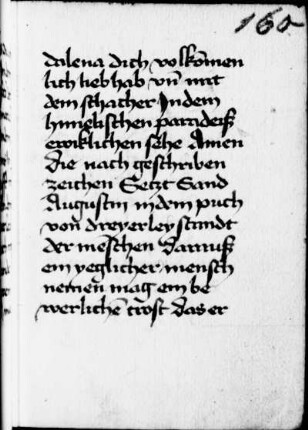 160
dalena dich volkōmen
lich lieb hab vn̄ mit
dem schacher Jn dem
himelischen paradeiß
ewiklichen sehe Amen
Die nach geschriben
zeichen Setzt Sand
Augustin in dem puch
von dreyerley standt
der mēschen Darauß
ein yeglicher mensch
nemen mag ein be
werlichē trost Das er